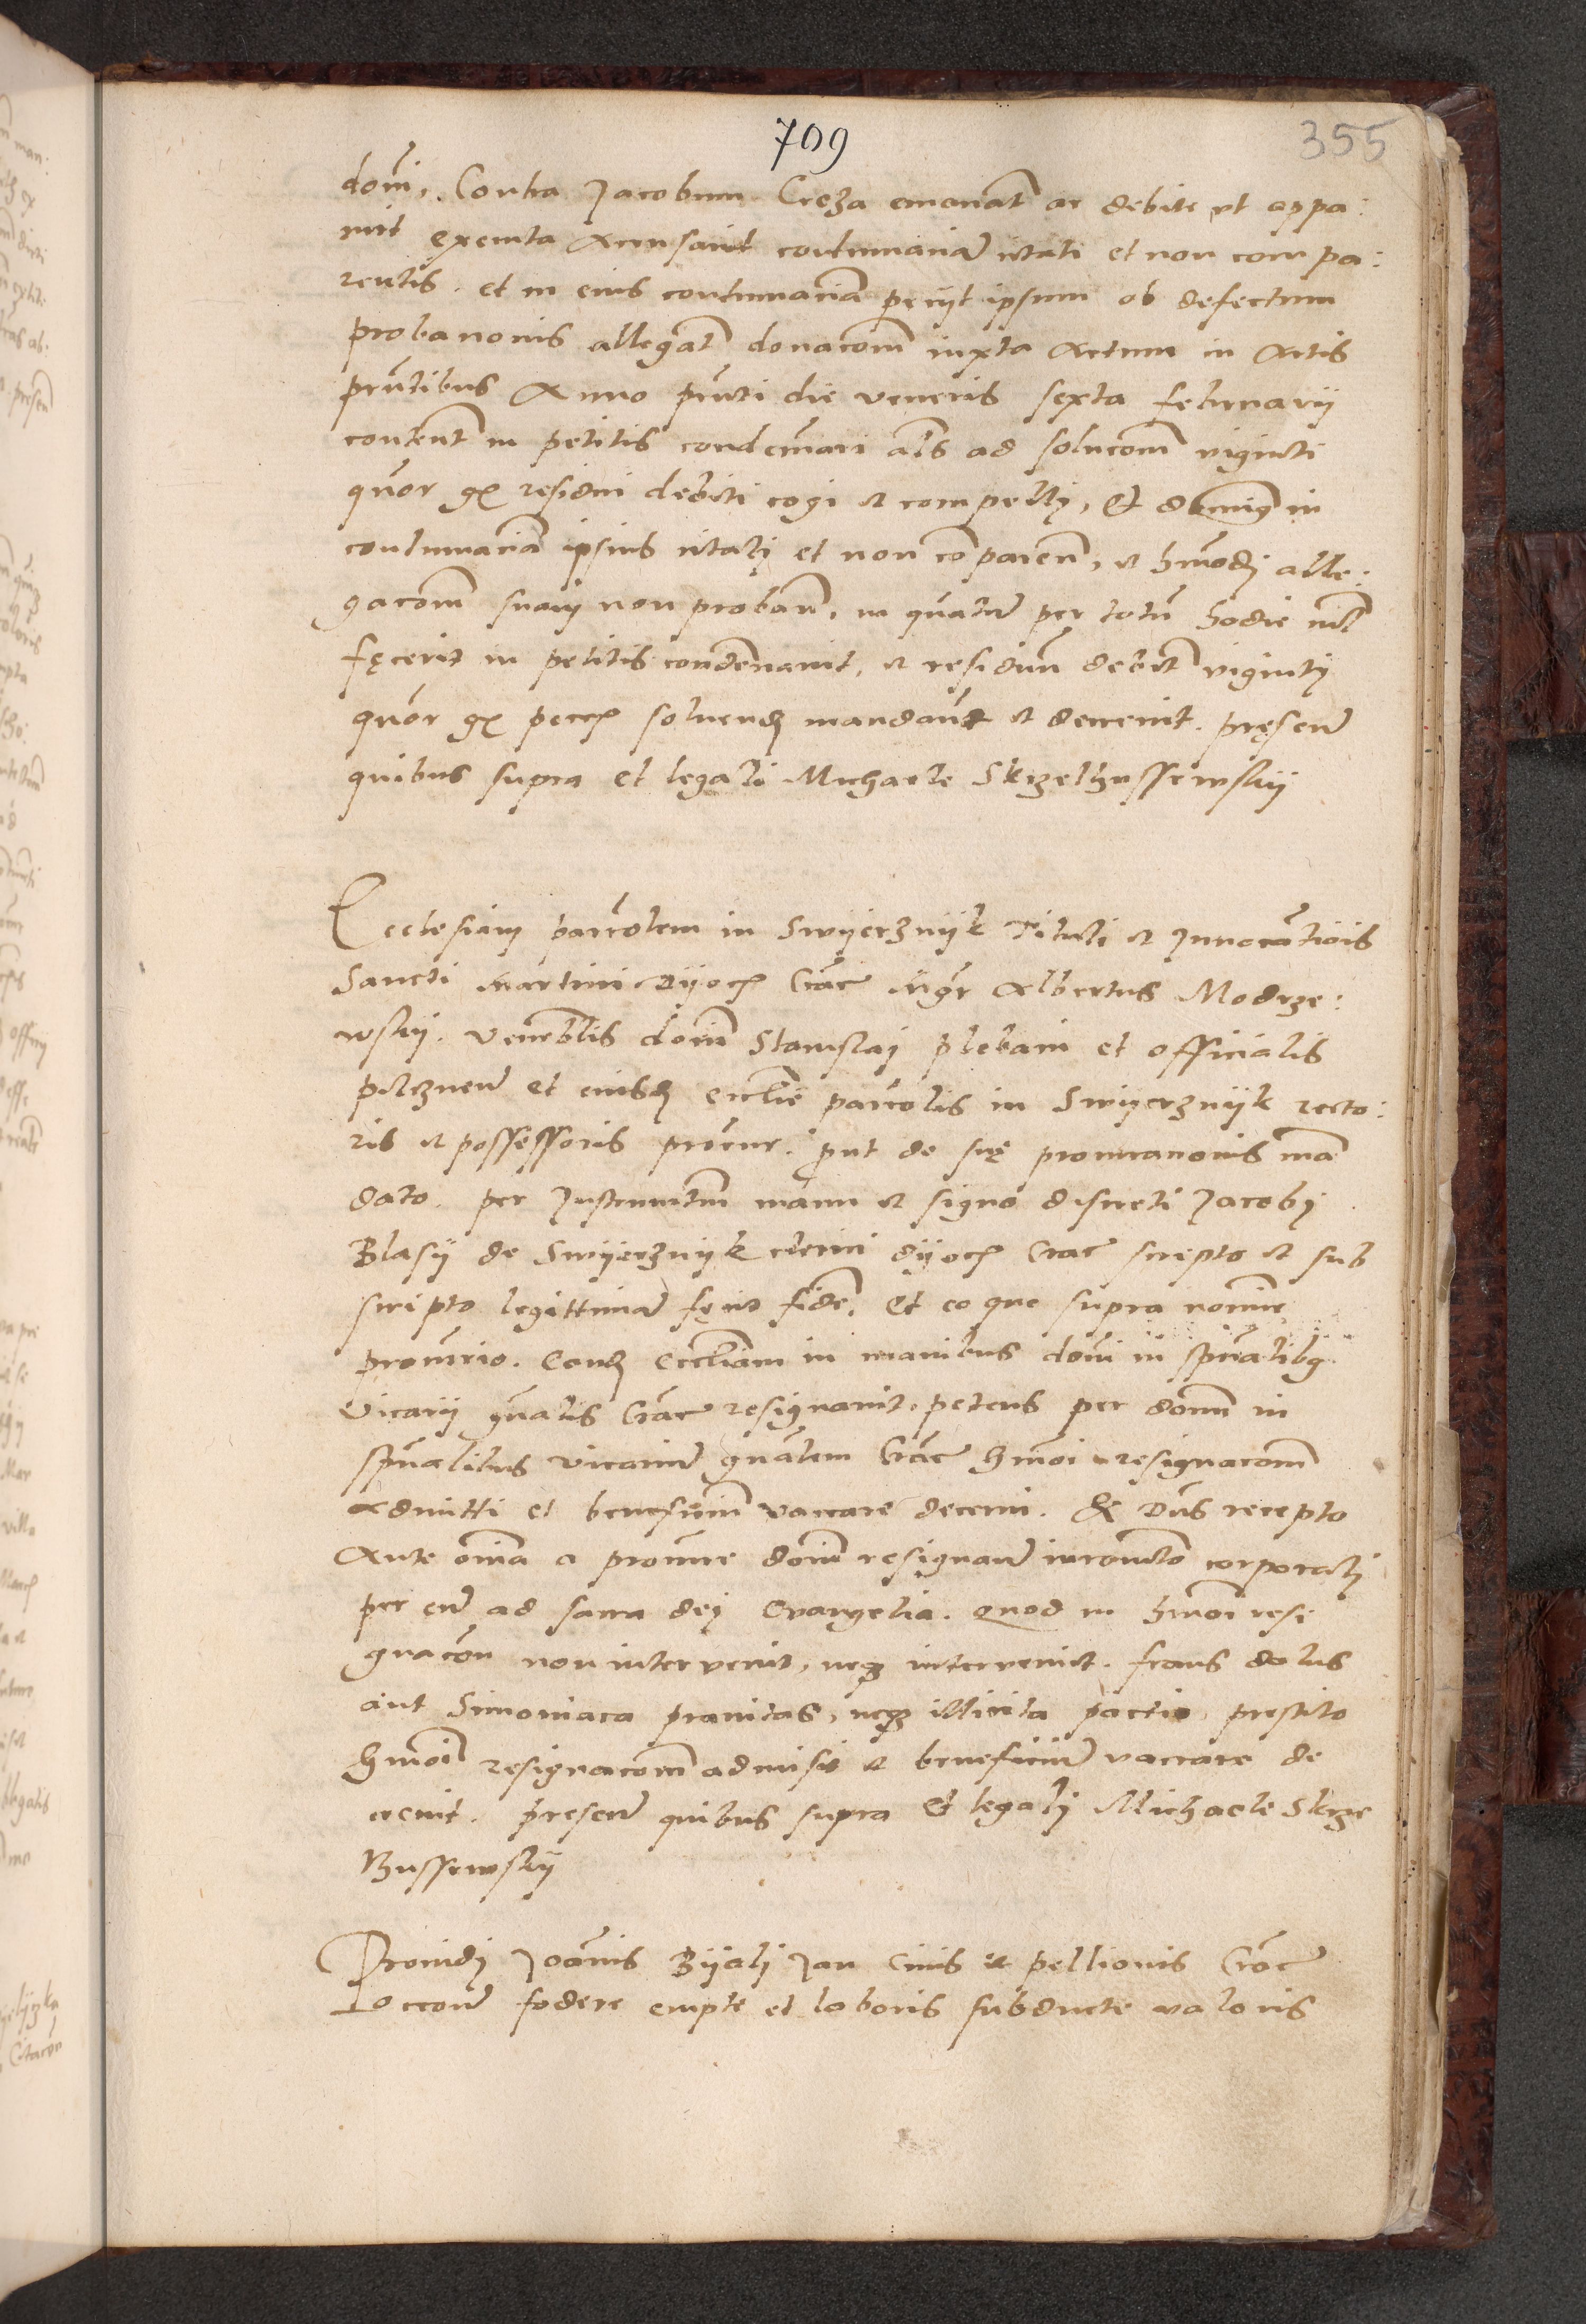 709
355
domi. Contra Jacobum Creza emanat ac debite ut appa:
ruit executa Accusavit contumaciam citati et non compa:
rentis. et in eius contumaciam petiit ipsum ob defectum
probationis allegat donacom iuxta Actum in Actis
prntibus Anno prnti die veneris sexta februarii
content in petitis condemnari als ad solucom viginti
quor gr residui debiti cogi et compelli, Et dominus in
contumaciam ipsius citati et non comparen, et hmodi alle:
gacom suam non proban, in quantum per totum hodie
fecerit in petitis condemnavit, et residuum debit viginti
quor gr soluend mandavit et decrevit. presen
quibus supra et legali Michaele Skrzethussewskij
Ecclesiam parrolem in Swijerznijk Tituli et Invocationis
Sancti Martini Dijoc Crac Mgr Albertus Modrze:
wskij. Venerablis domi Stanislai plebani et officialis
pilznen et eiusd ecclie parrolis in Swijerznijk recto:
ris et possessoris procur. put de sue procuracionis man
dato. per Instrumentum manu et signo discreti Jacobi
Blasij de Swijerznijk clerici dijoc Crac scripto et sub
scripto legittimam fecit fidem, Et eo quo supra nomine
procurrio. Eand eccliam in manibus domi in spiritualibus
Vicarij gnalis Crac resignavit, petens per domm in
spualibus vicarium gnalem Crac hmoi resignacom
admitti et beneficium vaccare decerni. Et Dns recepto
Ante omnia a procure domi resignan iuramento corporali
per eum ad sacra dei Evangelia. Quod in hmoi resi
gnacon non intervenit, neque interveniet. fraus dolus
aut Simoniaca pravitas, neque illicita pactio, prestito
hmoi resignacom admisit et beneficium vaccare de
crevit. presen quibus supra et legali Michaele Skrze
thussewskij
Providi Joannis Bijali Jan Civis et pellionis Crac
foder empte et laboris subducte valoris